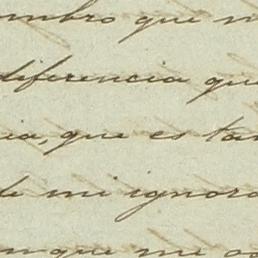 mbro que n
diferencia que
ia, que es tan
de mi ignora
unque me